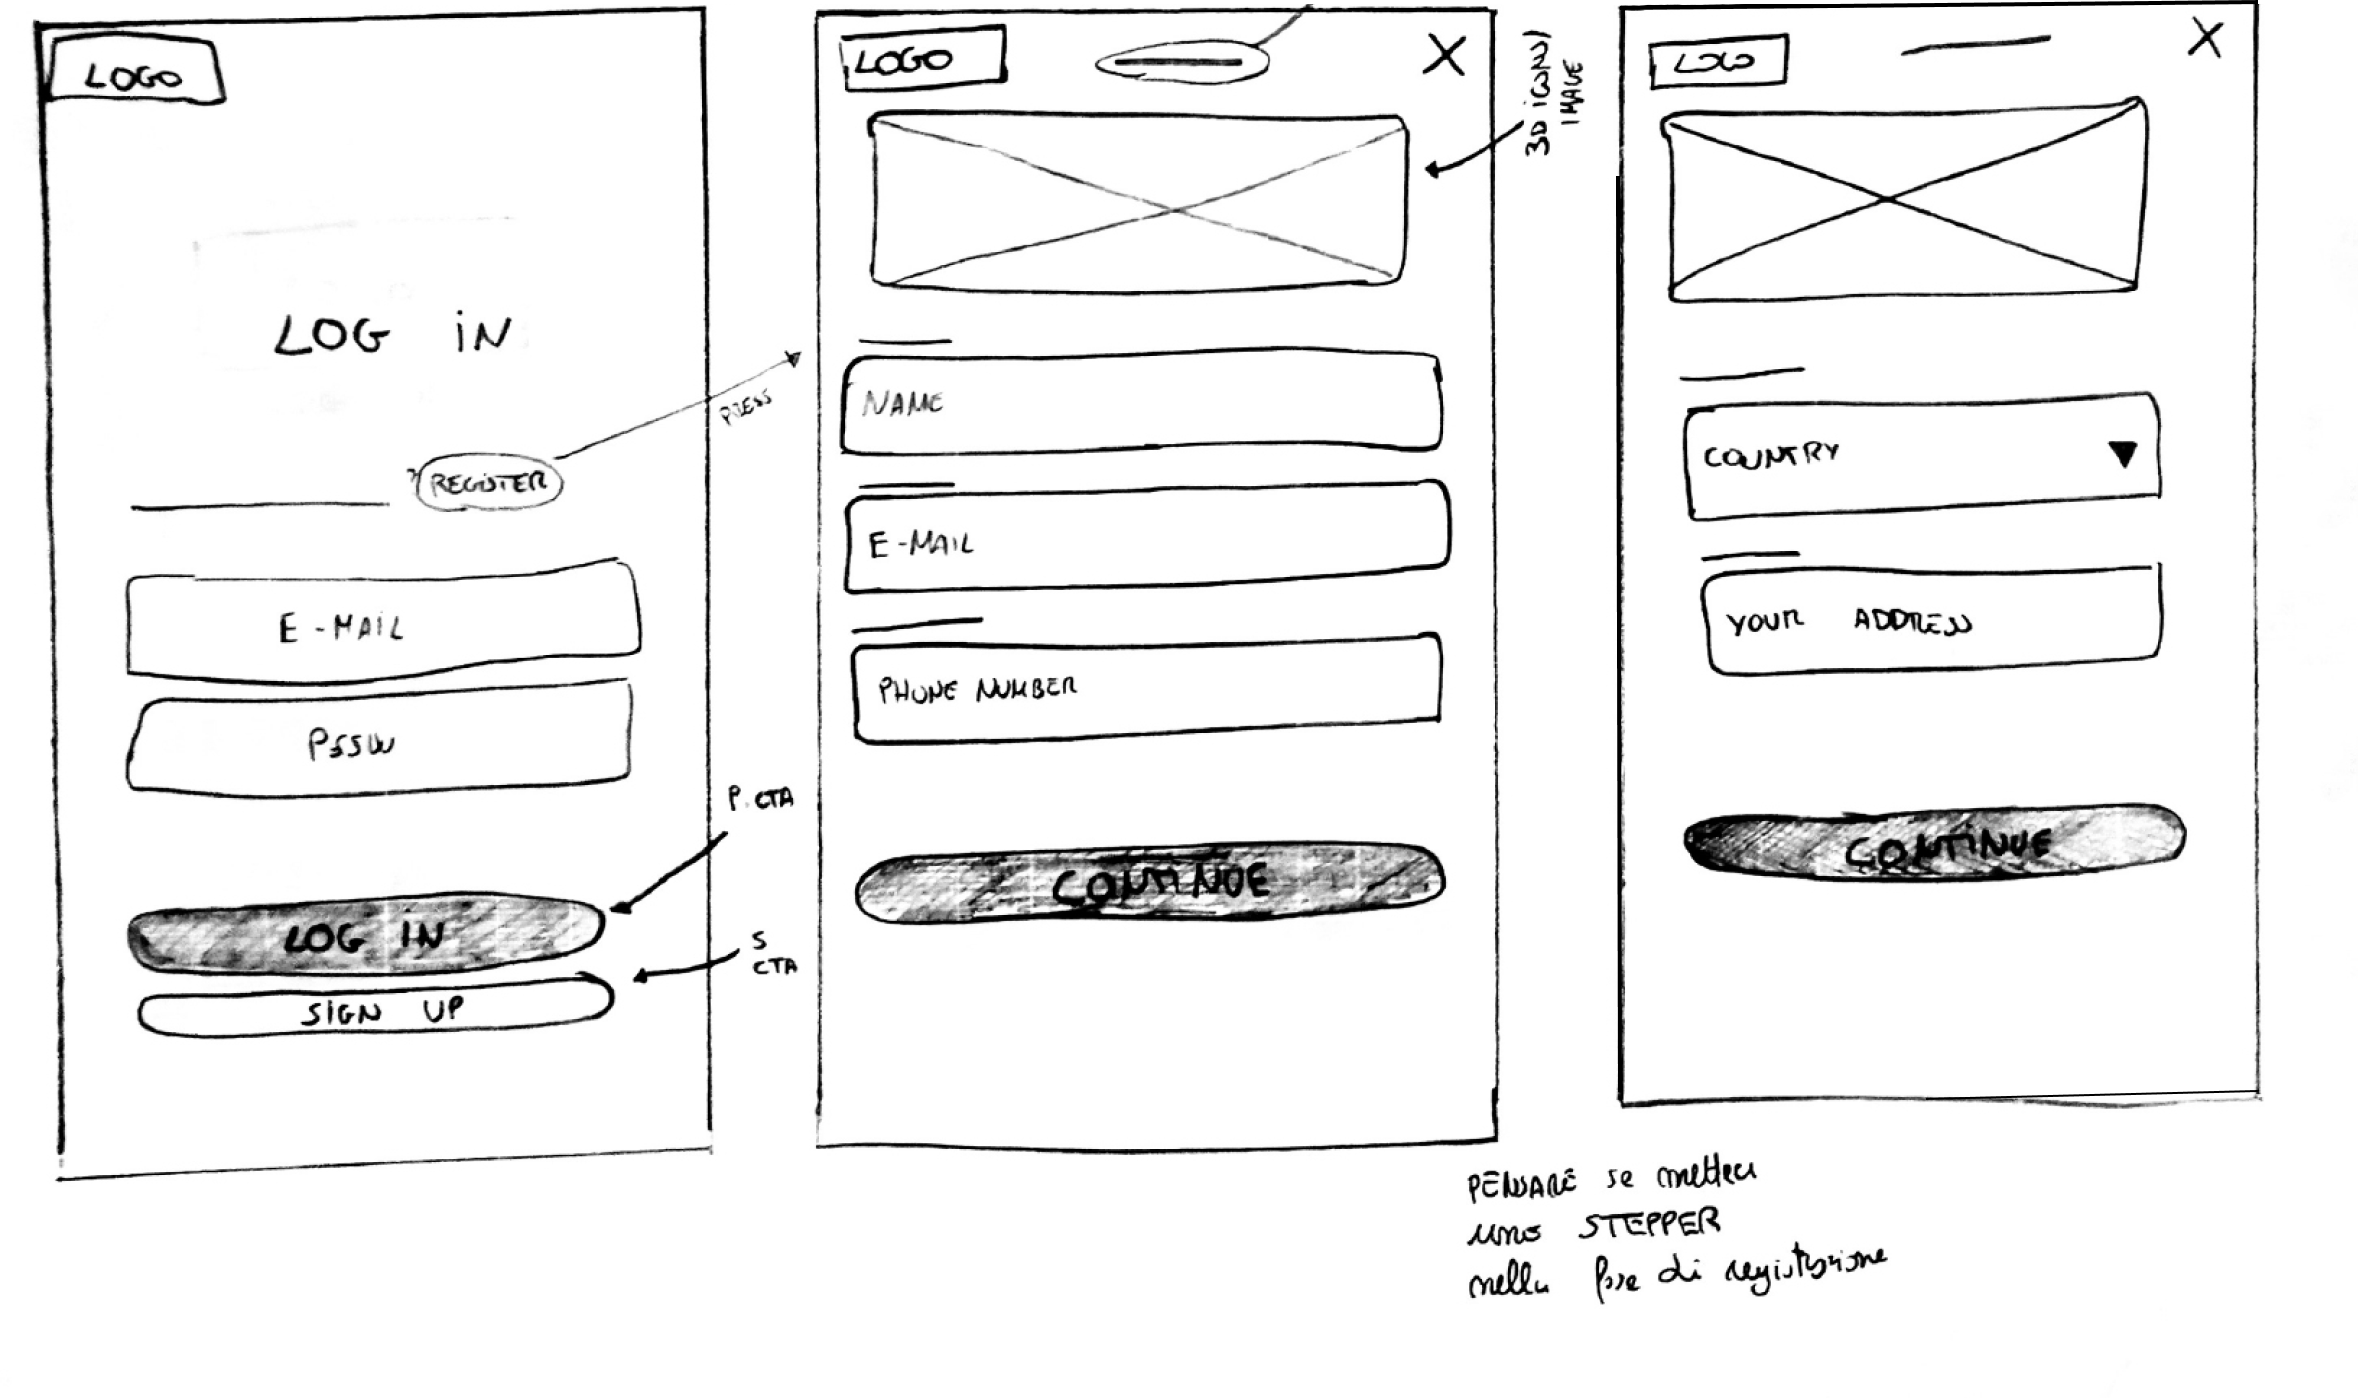 LOGO
LOG iN
? REGISTER
PRESS
E-MAIL
PSSW
P. CTA
LOG iN
S
CTA
SIGN UP
LOGO
X
3D iCON/
IMAGE
NAME
E-MAIL
PHONE NUMBER
CONTINUE
LOGO
X
COUNTRY
YOUR ADDRESS
CONTINUE
PENSARE se mettere
uno STEPPER
nella fase di registrazione